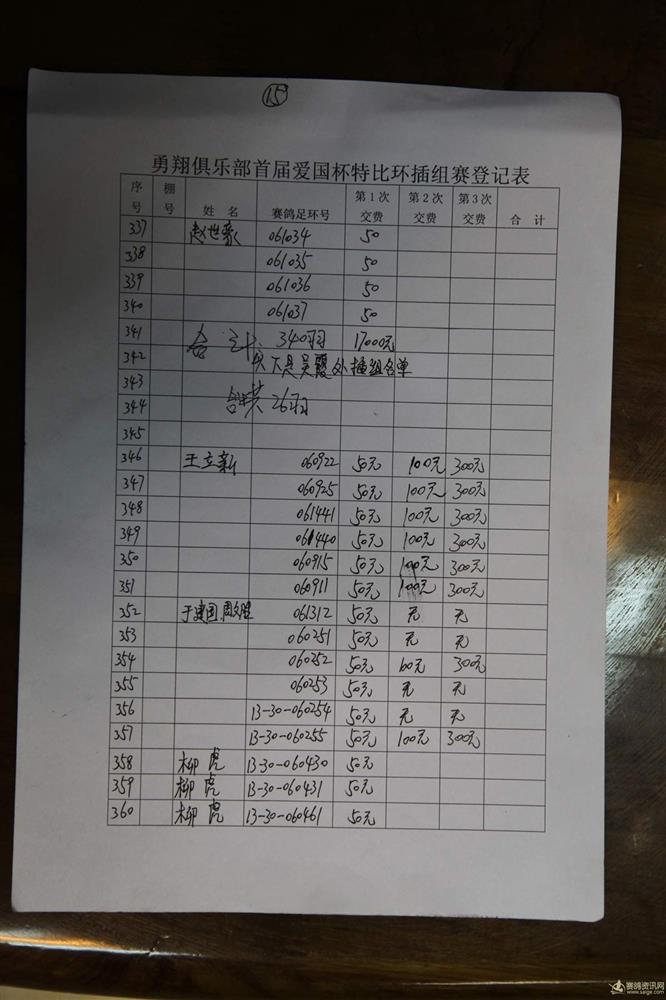 15
勇翔俱乐部首届爱国杯特比环插组赛登记表
序号 棚号 姓 名 赛鸽足环号 第1次交费 第2次交费 第3次交费 合 计
337 赵世豪 061034 50
338 061035 50
339 061036 50
340 061037 50
341 合计: 340羽 17000元
342 以下是吴霞处插组名单
343
344 共26羽
345
346 王立新 060922 50元 100元 300元
347 060925 50元 100元 300元
348 061441 50元 100元 300元
349 061440 50元 100元 300元
350 060915 50元 100元 300元
351 060911 50元 100元 300元
352 于建国 061312 50元 无 无
353 060251 50元 无 无
354 060252 50元 100元 300元
355 060253 50元 无 无
356 13-30-060254 50元 无 无
357 13-30-060255 50元 100元 300元
358 柳虎 13-30-060430 50元
359 柳虎 13-30-060431 50元
360 柳虎 13-30-060461 50元
赛鸽资讯网
www.saige.com